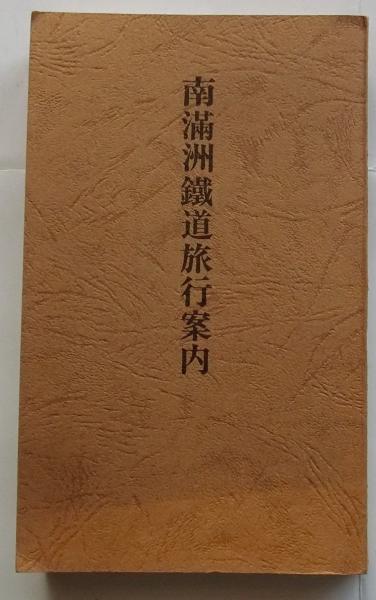 南滿洲鐵道旅行案内